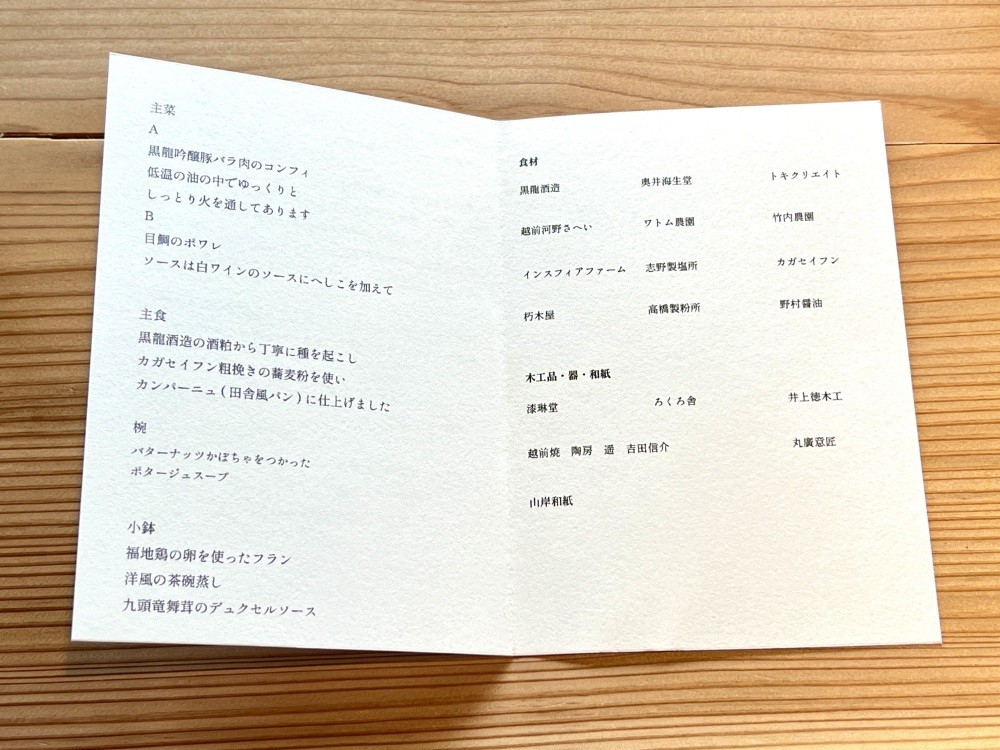 主菜
A
黒龍吟醸豚バラ肉のコンフィ
低温の油の中でゆっくりと
しっとり火を通してあります
B
目鯛のポワレ
ソースは白ワインのソースにへしこを加えて
主食
黒龍酒造の酒粕から丁寧に種を起こし
カガセイフン粗挽きの蕎麦粉を使い
カンパーニュ(田舎風パン)に仕上げました
椀
バターナッツかぼちゃをつかった
ポタージュスープ
小鉢
福地鶏の卵を使ったフラン
洋風の茶碗蒸し
九頭竜舞茸のデュクセルソース
食材
黒龍酒造 奥井海生堂 トキクリエイト
越前河野さへい ワトム農園 竹内農園
インスフィアファーム 志野製塩所 カガセイフン
朽木屋 高橋製粉所 野村醤油
木工品・器・和紙
漆琳堂 ろくろ舎 井上徳木工
越前焼 陶房 遥 吉田信介 丸廣意匠
山岸和紙